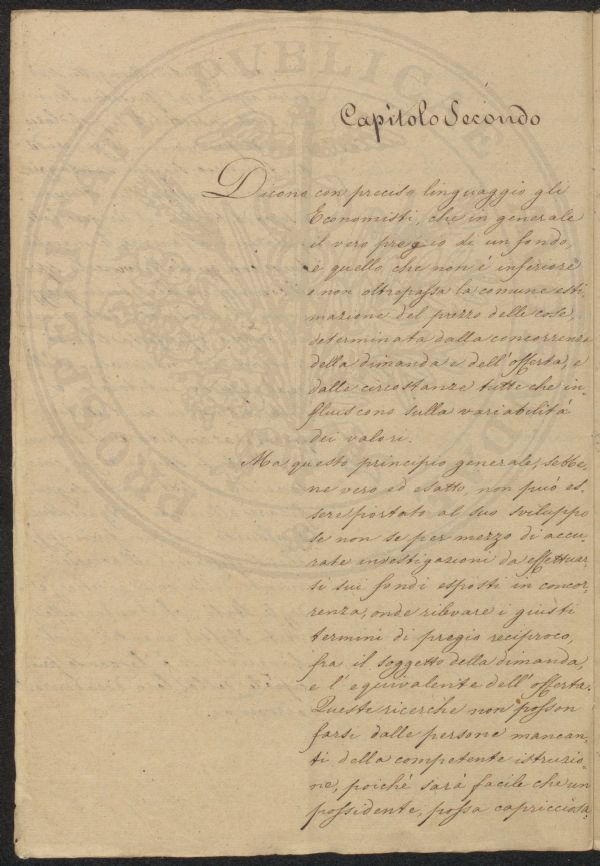 Capitolo Secondo
Dicono con preciso linguaggio gli
Economisti, che in generale
il vero pregio di un fondo,
è quello, che non è inferiore
e non oltrepassa la comune esti
mazione del prezzo delle cose,
determinata dalla concorrenza
della dimanda e dell'offerta, e
dalle circostanze tutte che in=
fluiscono sulla variabilità
dei valori.
Ma questo principio generale, sebbe,
ne vero ed esatto, non può es,
sere portato al suo sviluppo
se non se per mezzo di accu,
rate investigazioni da effettuar
si sui fondi esposti in concor,
renza, onde rilevare i giusti
termini di pregio reciproco,
fra il soggetto della dimanda,
e l'equivalente dell'offerta.
Queste ricerche non posson
farsi dalle persone mancan,
ti della competente istruzio,
ne, poiché sarà facile che un
possidente, possa capricciosa,